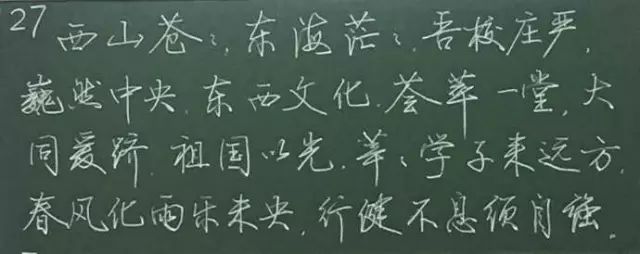 27 西山苍々,东海茫々,吾校庄严,
巍然中央,东西文化,荟萃一堂,大
同爰跻,祖国以光,莘々学子来远方,
春风化雨乐未央,行健不息须自强。